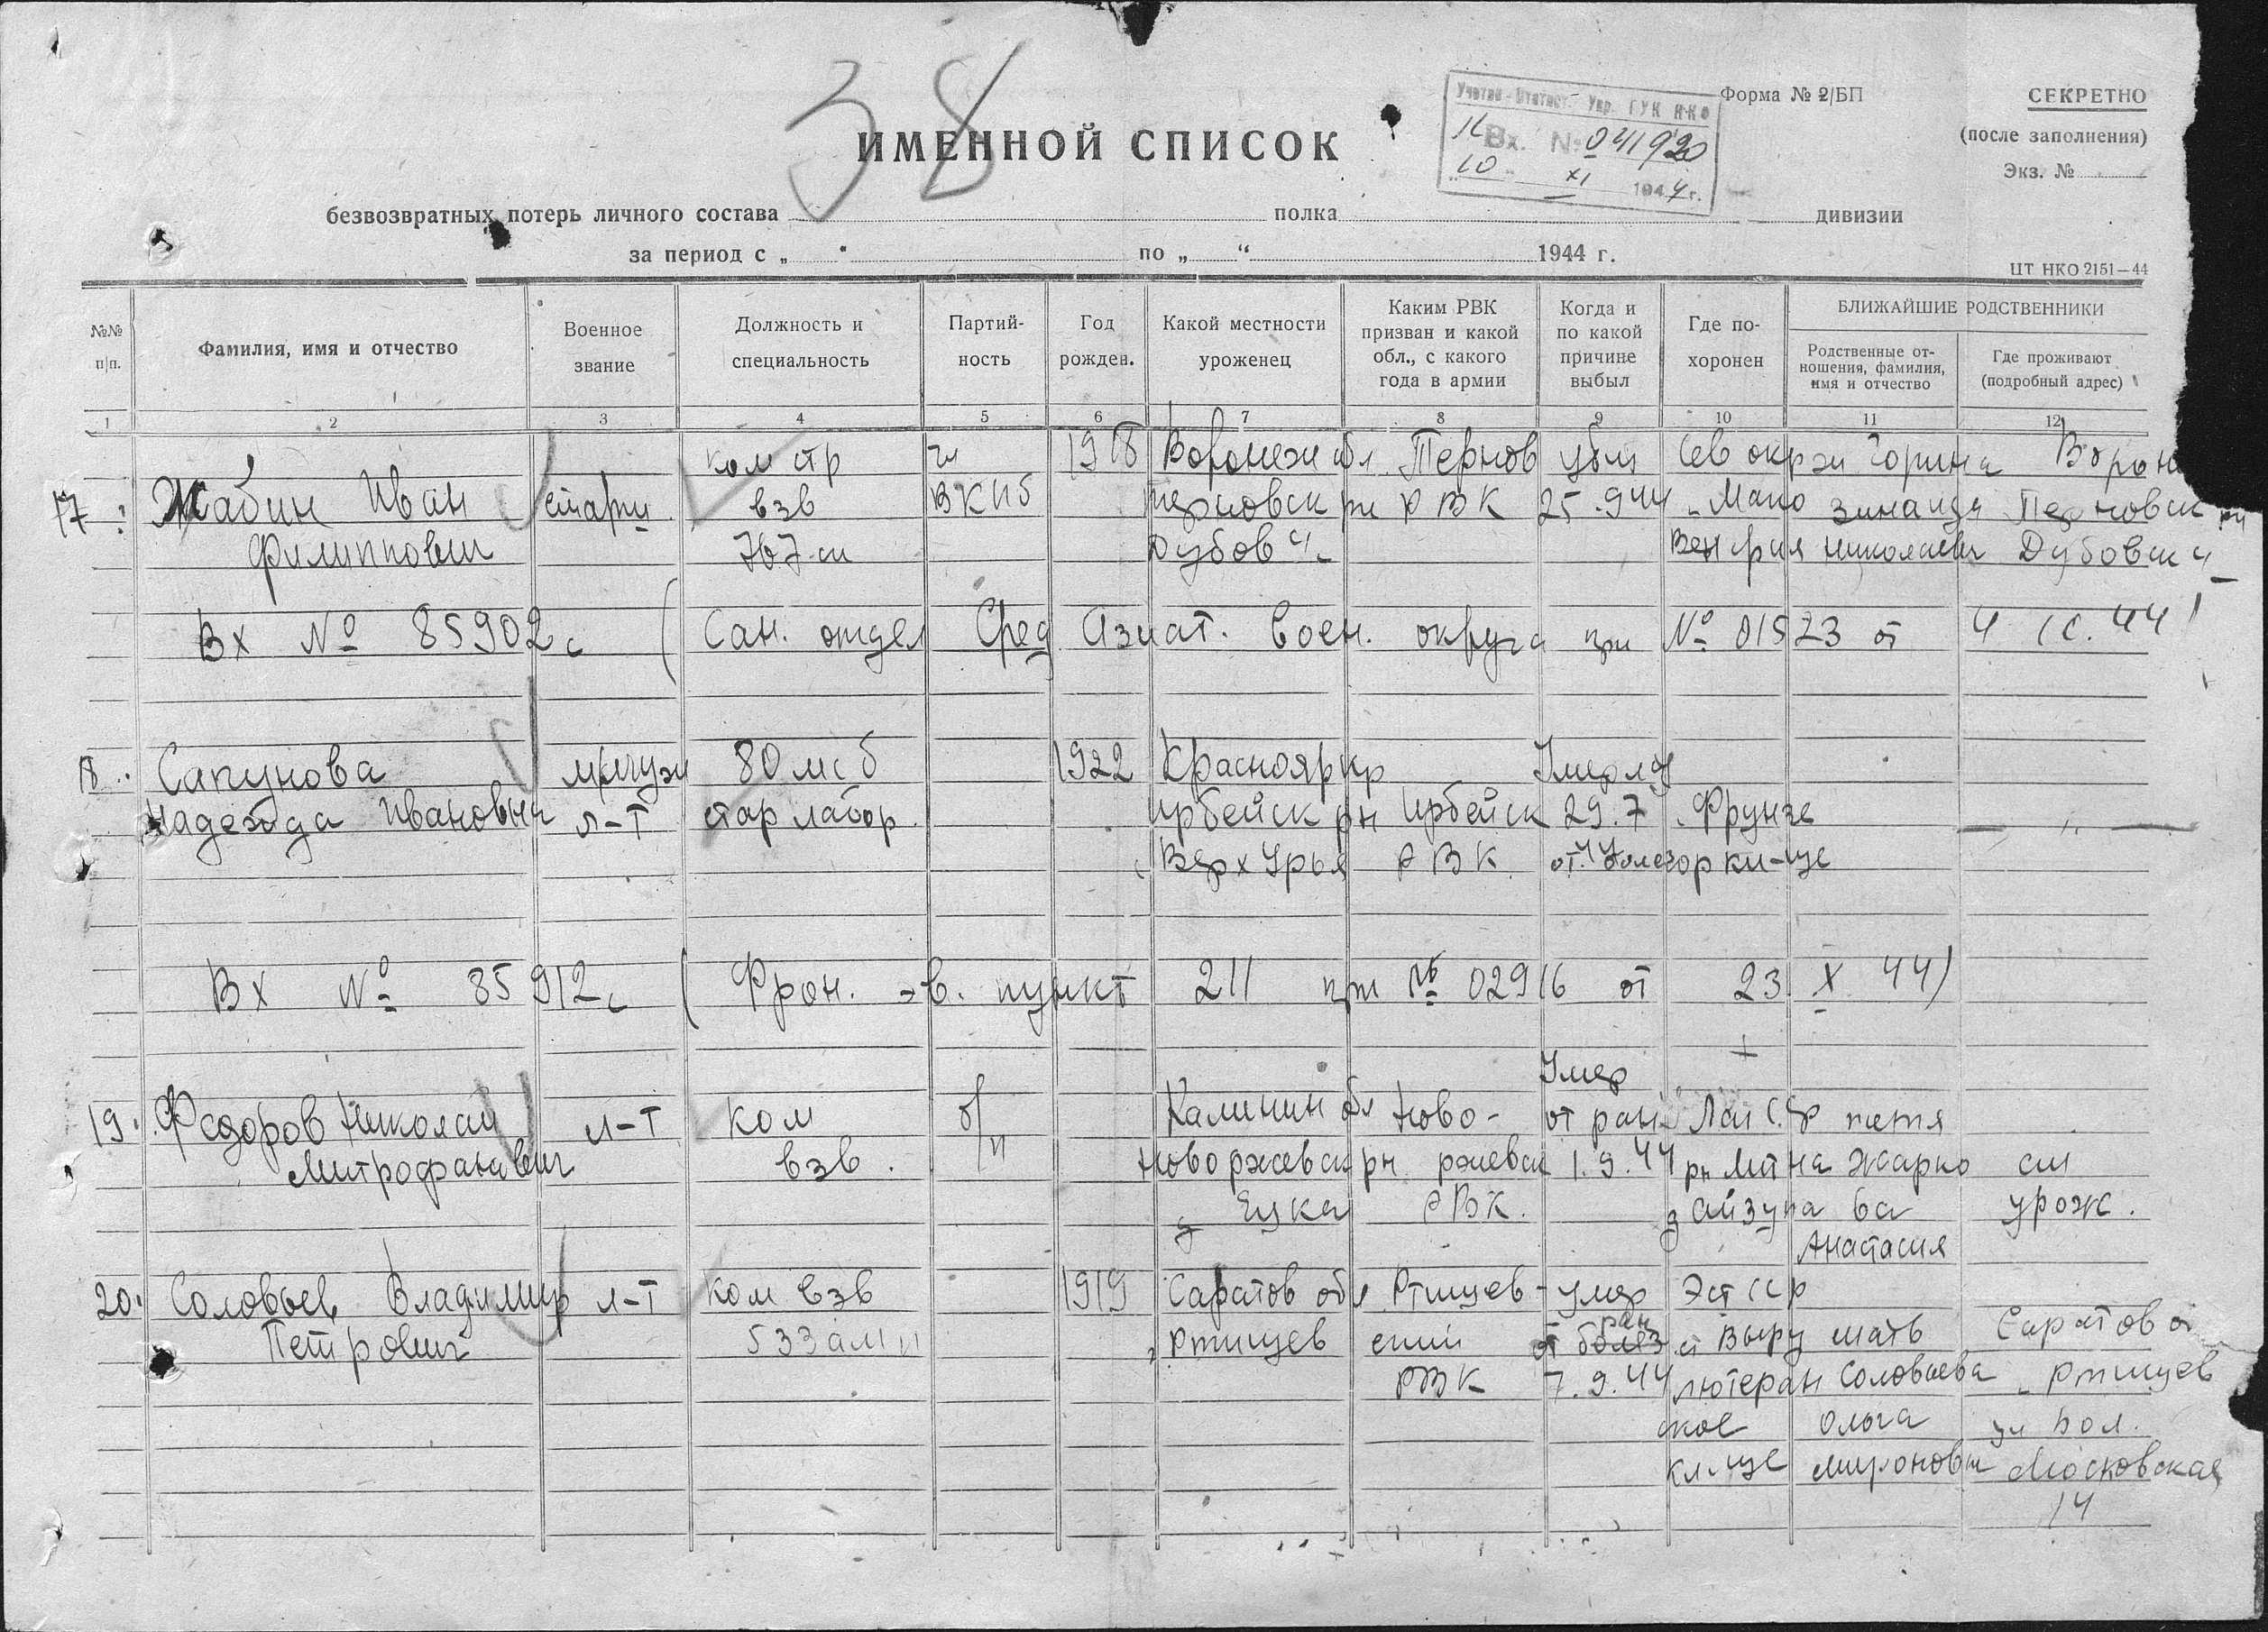 38
Учетно-Статист. Упр. ГУК НКО
Вх. № 041920
10 XI 1944 г.
Форма № 2/БП
СЕКРЕТНО
(после заполнения)
Экз. №
ИМЕННОЙ СПИСОК
безвозвратных потерь личного состава полка дивизии
за период с „ “ по „ “ 1944 г.
ЦТ НКО 2151—44
№№ п/п.
Фамилия, имя и отчество
Военное звание
Должность и специальность
Партий-ность
Год рожден.
Какой местности уроженец
Каким РВК призван и какой обл., с какого года в армии
Когда и по какой причине выбыл
Где по-хоронен
БЛИЖАЙШИЕ РОДСТВЕННИКИ
Родственные от-ношения, фамилия, имя и отчество
Где проживают (подробный адрес)
1 2 3 4 5 6 7 8 9 10 11 12
ком стр чл 1918 Воронеж обл. Тернов убит Сев окр
17. Жабин Иван взв ВКПб Терновск рн РВК 25.9.44 Мако Зинаида Терновск рн
Филиппович 767 сп Дубов Венгрия Николаевн Дубовск
Вх № 85902с (Сан. отдел Сред Азиат. воен. округа при № 01523 от 4 44)
18. Сапунова мл 80 мсб 1922 Краснояр кр Умерла
Надежда Ивановна л-т стар лабор. Ирбейск рн Ирбейск 29.7 г. Фрунзе — " —
Верх Урья РВК от болез гор кл-ще
Вх № 85912с (Фрон. эв. пункт 211 при № 02916 от 23 X 44)
Умер
19. Федоров Николай л-т ком б/п Калинин обл Ново- от ран Лат ССР тетя
Митрофанович взв. Новоржевск рн ржевск 1.9.44 рн
д РВК. д урож.
Анастасия
20. Соловьев Владимир л-т ком взв 1919 Саратов обл Ртищев- умер Эст ССР
Петрович 533 амп г Ртищев ский от болез ран г Выру мать Саратов о
РВК 7.9.44 лютеран Соловьева г Ртищев
ское Ольга ул Бол.
кл-ще Мироновн Московская
14